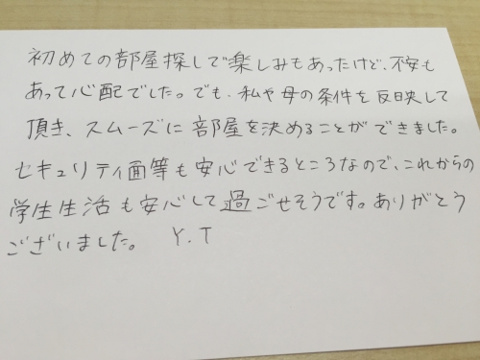 初めての部屋探しで楽しみもあったけど、不安も
あって心配でした。でも、私や母の条件を反映して
頂き、スムーズに部屋を決めることができました。
セキュリティ面等も安心できるところなので、これからの
学生生活も安心して過ごせそうです。ありがとう
ございました。 Y.T